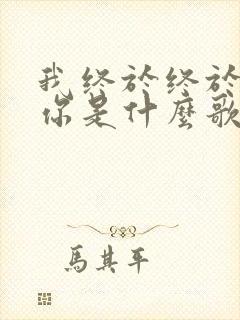 我终於终於
你是什麼歌
馬其平